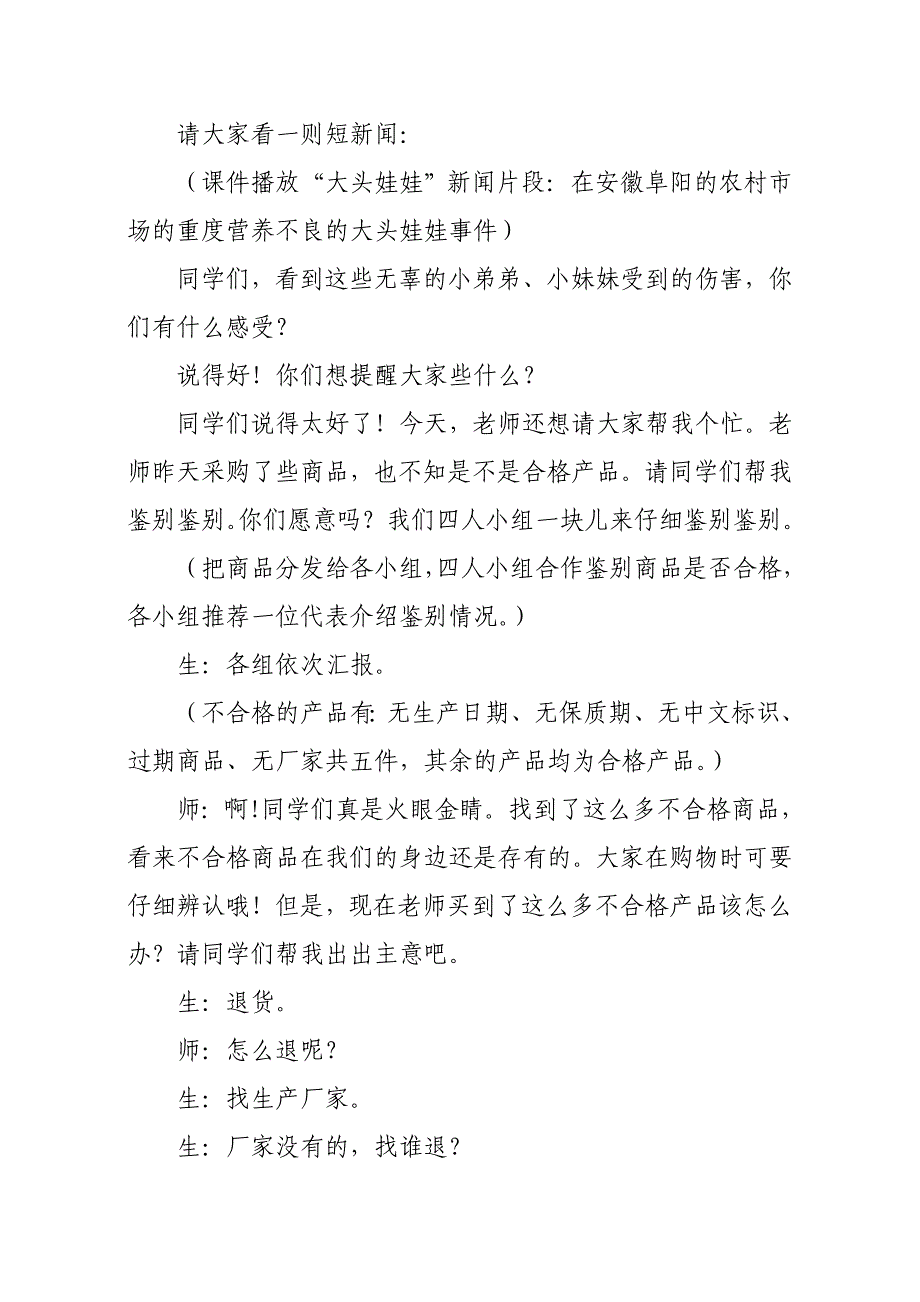 请大家看一则短新闻：
（课件播放“大头娃娃”新闻片段：在安徽阜阳的农村市
场的重度营养不良的大头娃娃事件）
同学们，看到这些无辜的小弟弟、小妹妹受到的伤害，你
们有什么感受？
说得好！你们想提醒大家些什么？
同学们说得太好了！今天，老师还想请大家帮我个忙。老
师昨天采购了些商品，也不知是不是合格产品。请同学们帮我
鉴别鉴别。你们愿意吗？我们四人小组一块儿来仔细鉴别鉴别。
（把商品分发给各小组，四人小组合作鉴别商品是否合格，
各小组推荐一位代表介绍鉴别情况。）
生：各组依次汇报。
（不合格的产品有：无生产日期、无保质期、无中文标识、
过期商品、无厂家共五件，其余的产品均为合格产品。）
师：啊！同学们真是火眼金睛。找到了这么多不合格商品，
看来不合格商品在我们的身边还是存有的。大家在购物时可要
仔细辨认哦！但是，现在老师买到了这么多不合格产品该怎么
办？请同学们帮我出出主意吧。
生：退货。
师：怎么退呢？
生：找生产厂家。
生：厂家没有的，找谁退？